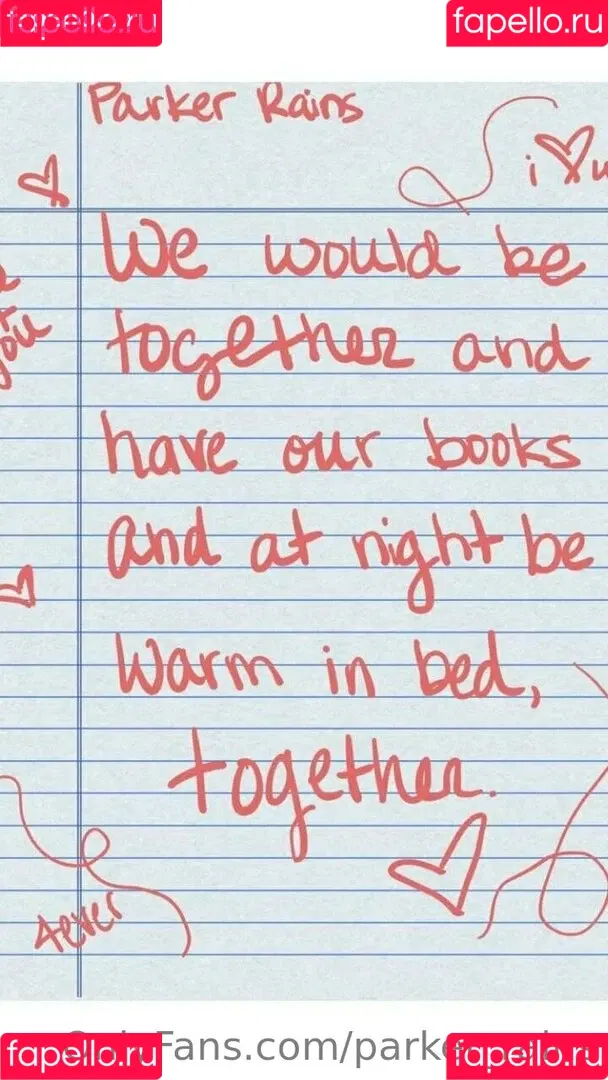 fapello.ru fapello.ru
Parker Rains
i u
We would be
you
together and
have our books
and at night be
warm in bed,
together.
4ever
Fans.com/parke
fapello.ru fapello.ru